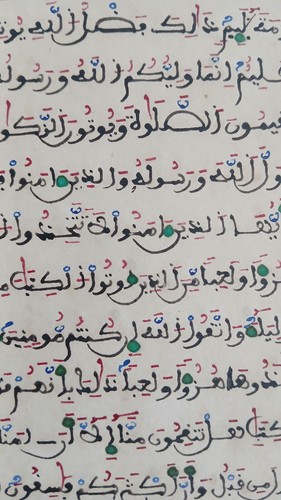 مَةَ لَئِمٍ ذَٰلِكَ فَضْلُ اُ۬للَّهِ يُوتِ
عَلِيمٌ اِنَّمَا وَلِيُّكُمُ اُ۬للَّهُ وَرَسُولُهُ
قِيمُونَ اَ۬لصَّلَوٰةَ وَيُوتُونَ اَ۬لزَّكَوٰ
وَلَّ اَ۬للَّهَ وَرَسُولَهُۥ وَالذِينَ ءَامَنُواْ
أَيُّهَا اَ۬لذِينَ ءَامَنُواْ لَا تَتَّخِذُواْ اُ۬
هُزُؤاً وَلَعِباً مِّنَ اَ۬لذِينَ أُوتُواْ اُ۬لْكِتَٰبَ مِ
لِيَآءَ وَاتَّقُواْ اُ۬للَّهَ إِن كُنتُم مُّومِنِينَ
خَذُوهَا هُزُؤاً وَلَعِباً ذَٰلِكَ بِأَنَّهُمْ قَوْ
كِتَٰبِ هَلْ تَنقِمُونَ مِنَّآ إِلَّآ أَنَ اٰمَنَّا
مِن قَبْلُ وَأَنَّ أَكْثَرَكُمْ فَٰسِقُونَ